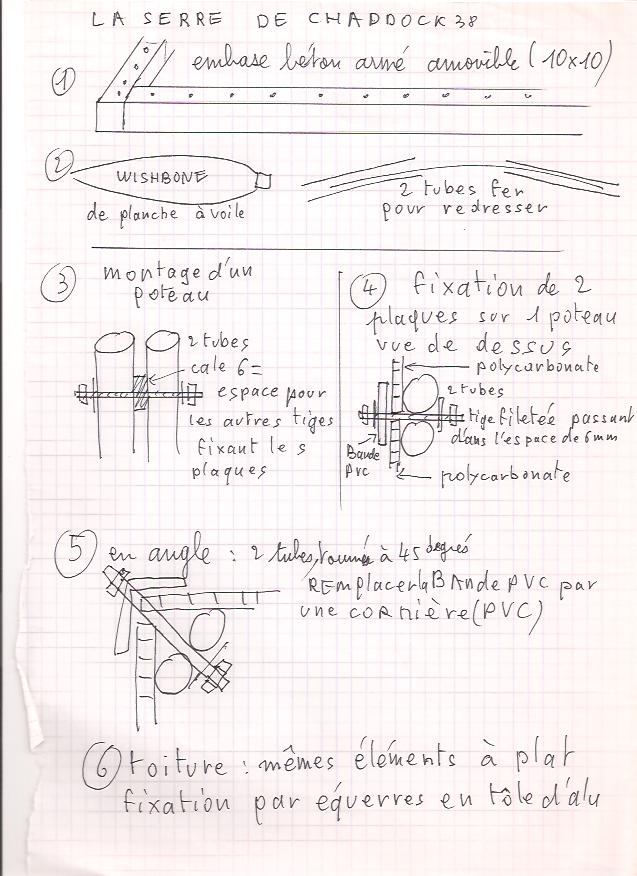 LA SERRE DE CHADDOCK38
① embase béton armé amovible (10x10)
② WISHBONE
de planche à voile
2 tubes fer
pour redresser
③ montage d'un
poteau
2 tubes
cale 6=
espace pour
les autres tiges
fixant les
plaques
④ fixation de 2
plaques sur 1 poteau
vue de dessus
polycarbonate
2 tubes
tige filetée passant
dans l'espace de 6mm
Bande
PVC
polycarbonate
⑤ en angle : 2 tubes, tournés à 45 degrés
REMPLACER la BANde PVC par
une CORNière (PVC)
⑥ toiture : mêmes éléments à plat
fixation par équerres en tôle d'alu